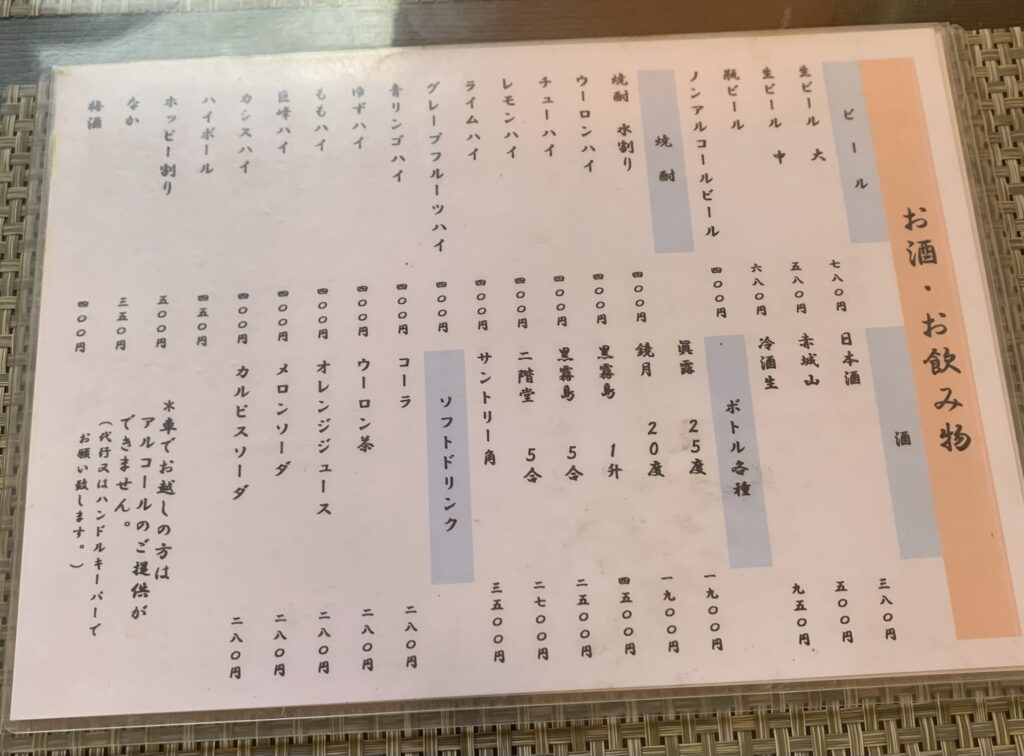 お酒・お飲み物
ビール
生ビール 大 七八〇円
生ビール 中 五八〇円
瓶ビール 六八〇円
ノンアルコールビール 四〇〇円
焼酎
焼酎 水割り 四〇〇円
ウーロンハイ 四〇〇円
チューハイ 四〇〇円
レモンハイ 四〇〇円
ライムハイ 四〇〇円
グレープフルーツハイ 四〇〇円
青リンゴハイ 四〇〇円
ゆずハイ 四〇〇円
ももハイ 四〇〇円
巨峰ハイ 四〇〇円
カシスハイ 四〇〇円
ハイボール 四五〇円
ホッピー割り 五〇〇円
なか 三五〇円
梅酒 四〇〇円
酒
日本酒 三八〇円
赤城山 五〇〇円
冷酒生 九五〇円
ボトル各種
眞露 25度 一九〇〇円
鏡月 20度 一九〇〇円
黒霧島 1升 四五〇〇円
黒霧島 5合 二五〇〇円
二階堂 5合 二七〇〇円
サントリー角 三五〇〇円
ソフトドリンク
コーラ 二八〇円
ウーロン茶 二八〇円
オレンジジュース 二八〇円
メロンソーダ 二八〇円
カルピスソーダ 二八〇円
＊車でお越しの方は
アルコールのご提供が
できません。
（代行又はハンドルキーパーで
お願い致します。）